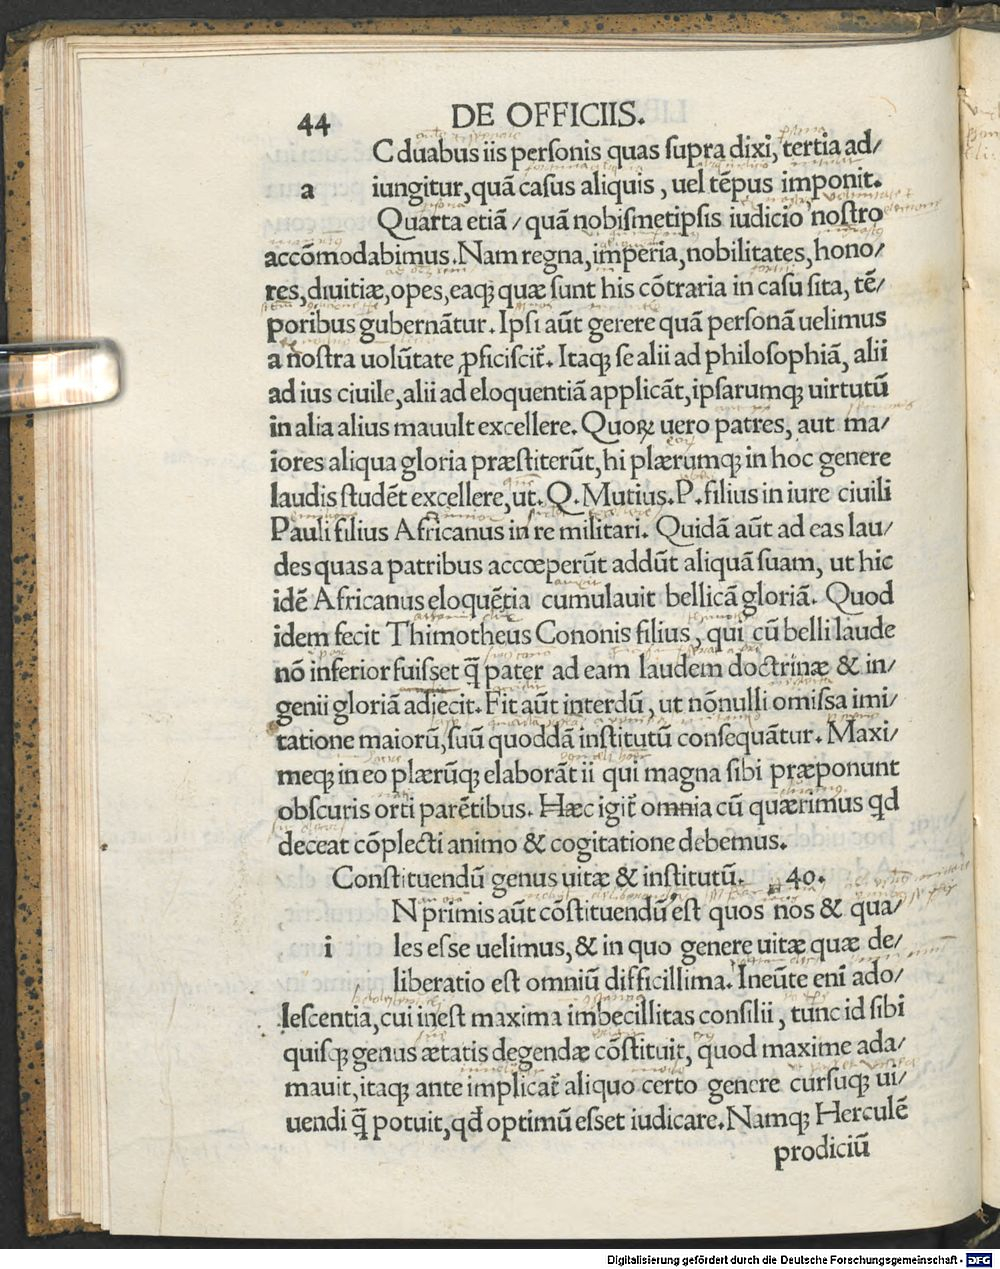 44 DE OFFICIIS.
C duabus iis personis quas supra dixi, tertia ad/
a iungitur, quā casus aliquis, uel tēpus imponit.
Quarta etiā / quā nobismetipsis iudicio nostro
accōmodabimus. Nam regna, imperia, nobilitates, hono/
res, diuitiæ, opes, eaqꝫ quæ sunt his cōtraria in casu sita, tē/
poribus gubernātur. Ipsi aūt gerere quā personā uelimus
a nostra uolūtate ꝓficiscit̃. Itaqꝫ se alii ad philosophiā, alii
ad ius ciuile, alii ad eloquentiā applicāt, ipsarumqꝫ uirtutū
in alia alius mauult excellere. Quoꝝ uero patres, aut ma/
iores aliqua gloria præstiterūt, hi plærumqꝫ in hoc genere
laudis studēt excellere, ut. Q. Mutius. P. filius in iure ciuili
Pauli filius Africanus in re militari. Quidā aūt ad eas lau/
des quas a patribus accœperūt addūt aliquā suam, ut hic
idē Africanus eloquētia cumulauit bellicā gloriā. Quod
idem fecit Thimotheus Cononis filius, qui cū belli laude
nō inferior fuisset q̃ pater ad eam laudem doctrinæ & in/
genii gloriā adiecit. Fit aūt interdū, ut nōnulli omissa imi/
tatione maiorū, suū quoddā institutū consequātur. Maxi/
meqꝫ in eo plærūqꝫ elaborāt ii qui magna sibi præponunt
obscuris orti parētibus. Hæc igit̃ omnia cū quærimus qd̄
deceat cōplecti animo & cogitatione debemus.
Constituendū genus uitæ & institutū. 40.
N primis aūt cōstituendū est quos nos & qua/
i les esse uelimus, & in quo genere uitæ quæ de/
liberatio est omniū difficillima. Ineūte enī ado/
lescentia, cui inest maxima imbecillitas consilii, tunc id sibi
quisqꝫ genus ætatis degendæ cōstituit, quod maxime ada/
mauit, itaqꝫ ante implicat̃ aliquo certo genere cursuqꝫ ui/
uendi q̃ potuit, qd̄ optimū esset iudicare. Namqꝫ Herculē
prodiciū
Digitalisierung gefördert durch die Deutsche Forschungsgemeinschaft - DFG